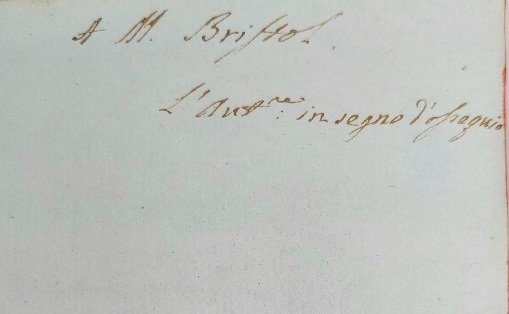 A M. Bristol
L'Aut.re in segno d'ossequio